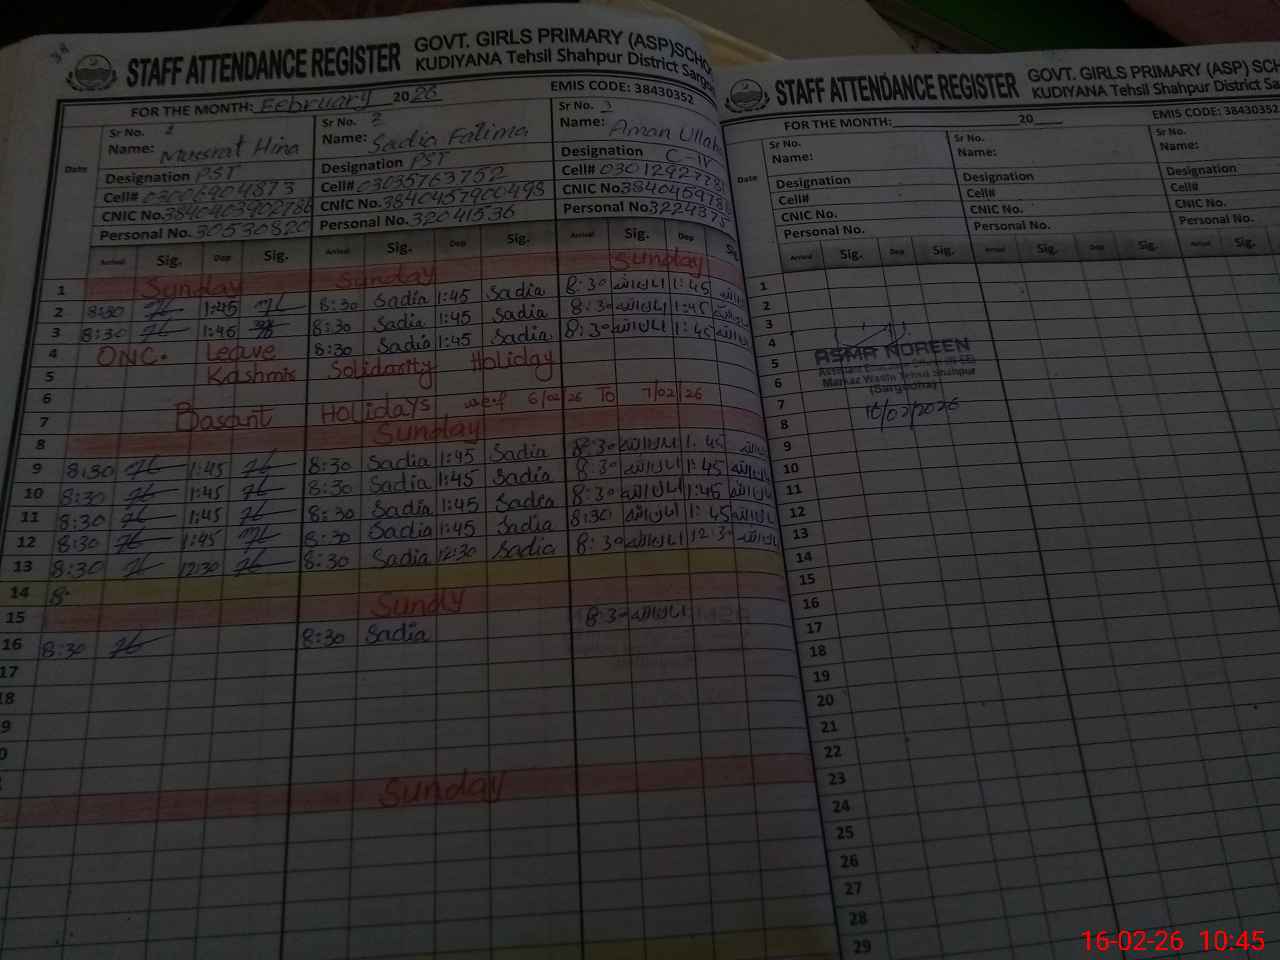 STAFF ATTENDANCE REGISTER GOVT. GIRLS PRIMARY (ASP)SCHO
KUDIYANA Tehsil Shahpur District Sargo
FOR THE MONTH: February 2026 EMIS CODE: 38430352
Date
Sr No. Sr No. 2 Sr No. 3
Name: Mussrat Hina Name: Sadia Fatima Name: Aman Ullah
Designation PST Designation PST Designation C-IV
Cell# 03006904873 Cell# 03035763752 Cell# 0301292778
CNIC No. CNIC No. 3840457900498 CNIC No.
Personal No. 30530820 Personal No. 32041536 Personal No. 3224375
Arrival Sig. Dep Sig. Arrival Sig. Dep Sig. Arrival Sig. Dep
1 Sunday Sunday Sunday
2 8:30 1:45 8:30 Sadia 1:45 Sadia 8:30 امان اللہ 1:45
3 8:30 1:45 8:30 Sadia 1:45 Sadia 8:30 امان اللہ 1:45
4 ONC. Leave 8:30 Sadia 1:45 Sadia 8:30 امان اللہ 1:45
5 Kashmir Solidarity Holiday
6
7 Basant Holidays wef 6/02/26 To 7/02/26
8 Sunday
9 8:30 1:45 8:30 Sadia 1:45 Sadia 8:30 امان اللہ 1:45
10 8:30 1:45 8:30 Sadia 1:45 Sadia 8:30 امان اللہ 1:45
11 8:30 1:45 8:30 Sadia 1:45 Sadia 8:30 امان اللہ 1:45
12 8:30 1:45 8:30 Sadia 1:45 Sadia 8:30 امان اللہ 1:45
13 8:30 12:30 8:30 Sadia 12:30 Sadia 8:30 امان اللہ 12:30
14 8:
15 Sundy
16 8:30 8:30 Sadia 8:30 امان اللہ
17
18
9
0
Sunday
STAFF ATTENDANCE REGISTER GOVT. GIRLS PRIMARY (ASP) SCH
KUDIYANA Tehsil Shahpur District Sa
FOR THE MONTH: 20 EMIS CODE: 38430352
Date
Sr No. Sr No. Sr No.
Name: Name: Name:
Designation Designation Designation
Cell# Cell# Cell#
CNIC No. CNIC No. CNIC No.
Personal No. Personal No. Personal No.
Arrival Sig. Dep Sig. Arrival Sig. Dep Sig. Arrival Sig.
1
2
3
4
5
6
7
8
9
10
11
12
13
14
15
16
17
18
19
20
21
22
23
24
25
26
27
28
29
ASMA NOREEN
Markaz Wadhi Tehsil Shahpur
(Sargodha)
16/02/2026
16-02-26 10:45